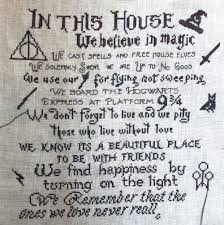 IN THIS HOUSE
We believe in magic
WE CAST SPELLS AND FREE HOUSE ELVES
WE SOLEMNLY SWEAR WE ARE UP TO NO GOOD
We use our for flying not sweeping
WE BOARD THE HOGWARTS
EXPRESS AT PLATFORM 9 3/4
We don't forget to live and we pity
those who live without love
WE KNOW ITS A BEAUTIFUL PLACE
TO BE WITH FRIENDS
WE FIND HAPPINESS BY
TURNING ON THE LIGHT
We Remember that the
ones we love never really